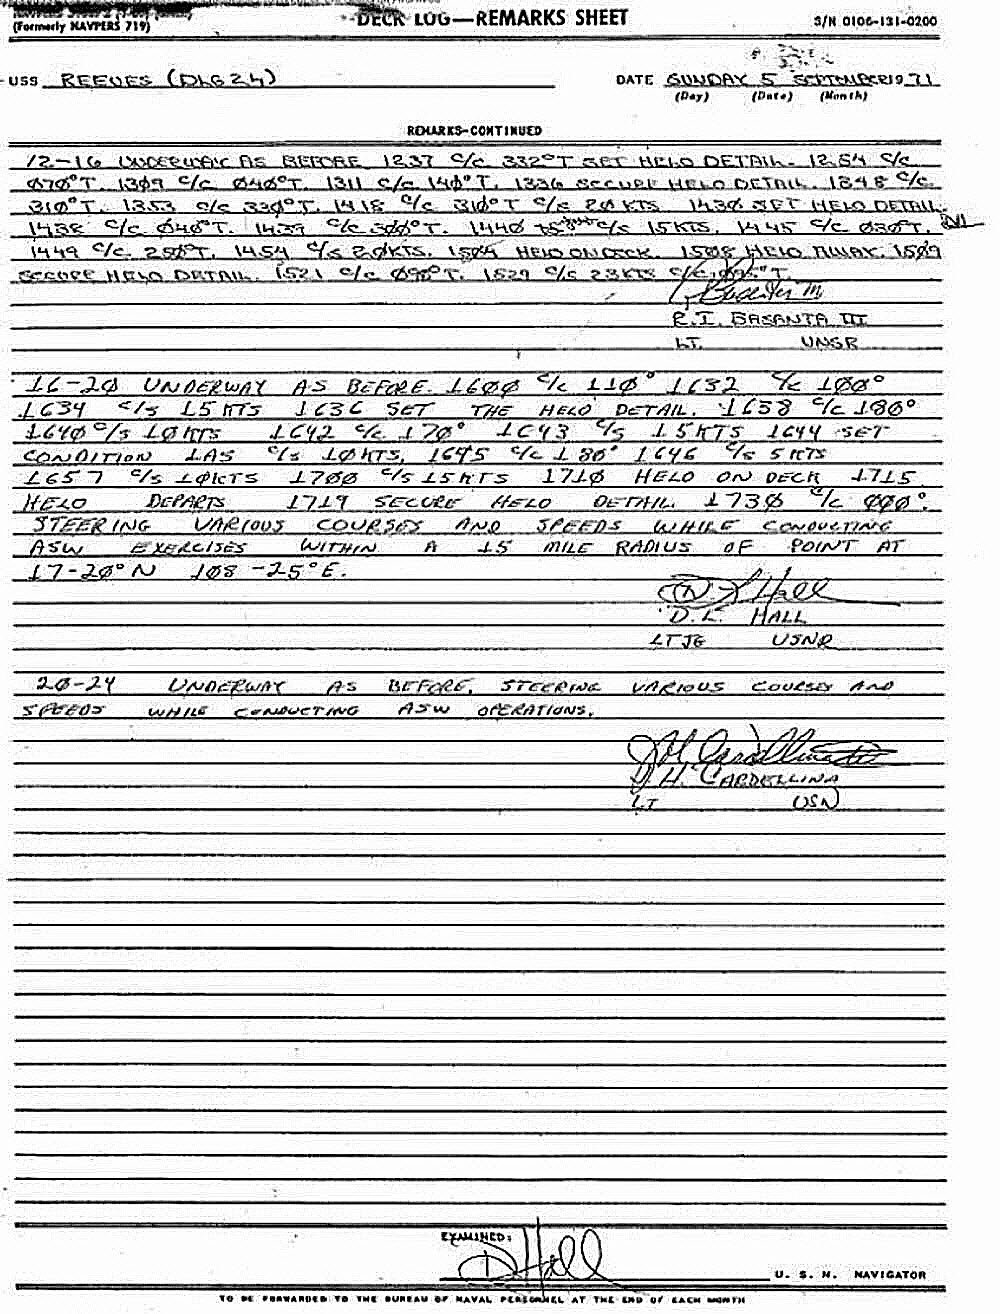 (Formerly NAVPERS 719)
DECK LOG—REMARKS SHEET
S/N 0106-131-0200
USS REEVES (DLG 24)
DATE SUNDAY 5 SEPTEMBER 1971
(Day) (Date) (Month)
REMARKS-CONTINUED
12-16 UNDERWAY AS BEFORE 1237 C/C 332°T SET HELO DETAIL. 1254 C/C
070°T. 1309 C/C 040°T. 1311 C/C 140°T. 1336 SECURE HELO DETAIL. 1348 C/C
310°T. 1353 C/C 330°T. 1418 C/C 310°T C/S 20 KTS 1430 SET HELO DETAIL.
1438 C/C 040°T. 1439 C/C 300°T. 1440 C/S 15 KTS. 1445 C/C 030°T.
1449 C/C 250°T. 1454 C/S 20KTS. 1504 HELO ON DECK. 1508 HELO AWAY. 1509
SECURE HELO DETAIL. 1521 C/C 090°T. 1529 C/S 23 KTS C/C 095°T.
R.I. BASANTA III
LT. UNSR
16-20 UNDERWAY AS BEFORE. 1600 C/C 110° 1632 C/C 100°
1634 C/S 15 KTS 1636 SET THE HELO DETAIL. 1638 C/C 180°
1640 C/S 10 KTS 1642 C/C 170° 1643 C/S 15 KTS 1644 SET
CONDITION 1AS C/S 10 KTS, 1645 C/C 180° 1646 C/S 5 KTS
1657 C/S 10KTS 1700 C/S 15 KTS 1710 HELO ON DECK 1715
HELO DEPARTS 1719 SECURE HELO DETAIL. 1730 C/C 000°.
STEERING VARIOUS COURSES AND SPEEDS WHILE CONDUCTING
ASW EXERCISES WITHIN A 15 MILE RADIUS OF POINT AT
17-20°N 108-25°E.
D. L. HALL
LTJG USNR
20-24 UNDERWAY AS BEFORE, STEERING VARIOUS COURSES AND
SPEEDS WHILE CONDUCTING ASW OPERATIONS.
D. H. CARDELLINA
LT USN
EXAMINED:
D Hall
U. S. N. NAVIGATOR
TO BE FORWARDED TO THE BUREAU OF NAVAL PERSONNEL AT THE END OF EACH MONTH